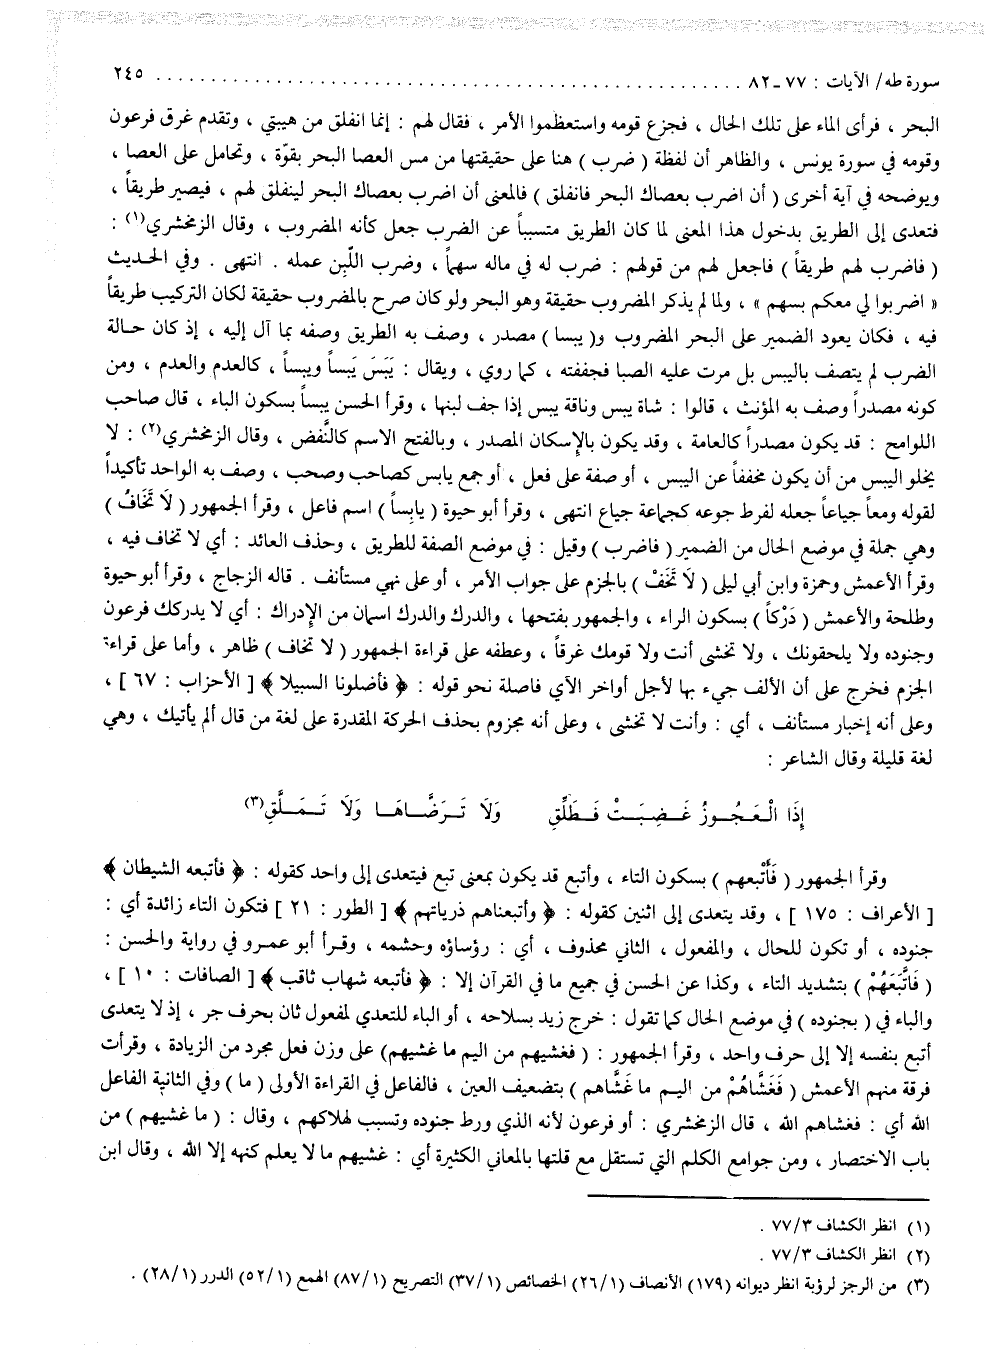 سورة طه/ الآيات : ٧٧ ـ ٨٢ ........................................................ ٢٤٥
البحر ، فرأى الماء على تلك الحال ، فجزع قومه واستعظموا الأمر ، فقال لهم : إنما انفلق من هيبتي ، وتقدم غرق فرعون
وقومه في سورة يونس ، والظاهر أن لفظة ( ضرب ) هنا على حقيقتها من مس العصا البحر بقوّة ، وتحامل على العصا ،
ويوضحه في آية أخرى ( أن اضرب بعصاك البحر فانفلق ) فالمعنى أن اضرب بعصاك البحر لينفلق لهم ، فيصير طريقاً ،
فتعدى إلى الطريق بدخول هذا المعنى لما كان الطريق متسبباً عن الضرب جعل كأنه المضروب ، وقال الزمخشري(١) :
( فاضرب لهم طريقاً ) فاجعل لهم من قولهم : ضرب له في ماله سهماً ، وضرب اللّبِن عمله . انتهى . وفي الحديث
« اضربوا لي معكم بسهم » ، ولما لم يذكر المضروب حقيقة وهو البحر ولو كان صرح بالمضروب حقيقة لكان التركيب طريقاً
فيه ، فكان يعود الضمير على البحر المضروب و( يبسا ) مصدر ، وصف به الطريق وصفه بما آل إليه ، إذ كان حالة
الضرب لم يتصف باليبس بل مرت عليه الصبا فجففته ، كما روي ، ويقال : يَبَسَ يَبَساً ويبساً ، كالعدم والعدم ، ومن
كونه مصدراً وصف به المؤنث ، قالوا : شاة يبس وناقة يبس إذا جف لبنها ، وقرأ الحسن يبساً بسكون الباء ، قال صاحب
اللوامح : قد يكون مصدراً كالعامة ، وقد يكون بالإسكان المصدر ، وبالفتح الاسم كالنَّفض ، وقال الزمخشري(٢) : لا
يخلو اليبس من أن يكون مخففاً عن اليبس ، أو صفة على فعل ، أو جمع يابس كصاحب وصحب ، وصف به الواحد تأكيداً
لقوله ومعاً جياعاً جعله لفرط جوعه كجماعة جياع انتهى ، وقرأ أبو حيوة ( يابِساً ) اسم فاعل ، وقرأ الجمهور ( لَا تَخَافُ )
وهي جملة في موضع الحال من الضمير ( فاضرب ) وقيل : في موضع الصفة للطريق ، وحذف العائد : أي لا تخاف فيه ،
وقرأ الأعمش وحمزة وابن أبي ليلى ( لَا تَخَفْ ) بالجزم على جواب الأمر ، أو على نهي مستأنف . قاله الزجاج ، وقرأ أبو حيوة
وطلحة والأعمش ( دَرْكاً ) بسكون الراء ، والجمهور بفتحها ، والدرك والدرك اسمان من الإدراك : أي لا يدركك فرعون
وجنوده ولا يلحقونك ، ولا تخشى أنت ولا قومك غرقاً ، وعطفه على قراءة الجمهور ( لا تخاف ) ظاهر ، وأما على قراءة
الجزم فخرج على أن الألف جيء بها لأجل أواخر الآي فاصلة نحو قوله : ﴿ فأضلونا السبيلا ﴾ [ الأحزاب : ٦٧ ] ،
وعلى أنه إخبار مستأنف ، أي : وأنت لا تخشى ، وعلى أنه مجزوم بحذف الحركة المقدرة على لغة من قال ألم يأتيك ، وهي
لغة قليلة وقال الشاعر :
إِذَا الْعَجُوزُ غَضِبَتْ فَطَلِّقِ وَلَا تَرَضَّاهَا وَلَا تَمَلَّقِ(٣)
وقرأ الجمهور ( فَأَتْبعهم ) بسكون التاء ، وأتبع قد يكون بمعنى تبع فيتعدى إلى واحد كقوله : ﴿ فأتبعه الشيطان ﴾
[ الأعراف : ١٧٥ ] ، وقد يتعدى إلى اثنين كقوله : ﴿ وأتبعناهم ذرياتهم ﴾ [ الطور : ٢١ ] فتكون التاء زائدة أي :
جنوده ، أو تكون للحال ، والمفعول ، الثاني محذوف ، أي : رؤساؤه وحشمه ، وقرأ أبو عمرو في رواية والحسن :
( فَاتَّبَعَهُمْ ) بتشديد التاء ، وكذا عن الحسن في جميع ما في القرآن إلا : ﴿ فأتبعه شهاب ثاقب ﴾ [ الصافات : ١٠ ] ،
والباء في ( بجنوده ) في موضع الحال كما تقول : خرج زيد بسلاحه ، أو الباء للتعدي لمفعول ثان بحرف جر ، إذ لا يتعدى
أتبع بنفسه إلا إلى حرف واحد ، وقرأ الجمهور : ( فغشيهم من اليم ما غشيهم ) على وزن فعل مجرد من الزيادة ، وقرأت
فرقة منهم الأعمش ( فَغَشَّاهُمْ من اليم ما غَشَّاهم ) بتضعيف العين ، فالفاعل في القراءة الأولى ( ما ) وفي الثانية الفاعل
الله أي : فغشاهم الله ، قال الزمخشري : أو فرعون لأنه الذي ورط جنوده وتسبب لهلاكهم ، وقال : ( ما غشيهم ) من
باب الاختصار ، ومن جوامع الكلم التي تستقل مع قلتها بالمعاني الكثيرة أي : غشيهم ما لا يعلم كنهه إلا الله ، وقال ابن
(١) انظر الكشاف ٧٧/٣ .
(٢) انظر الكشاف ٧٧/٣ .
(٣) من الرجز لرؤبة انظر ديوانه (١٧٩) الأنصاف (٢٦/١) الخصائص (٣٧/١) التصريح (٨٧/١) الهمع (٥٢/١) الدرر (٢٨/١) .